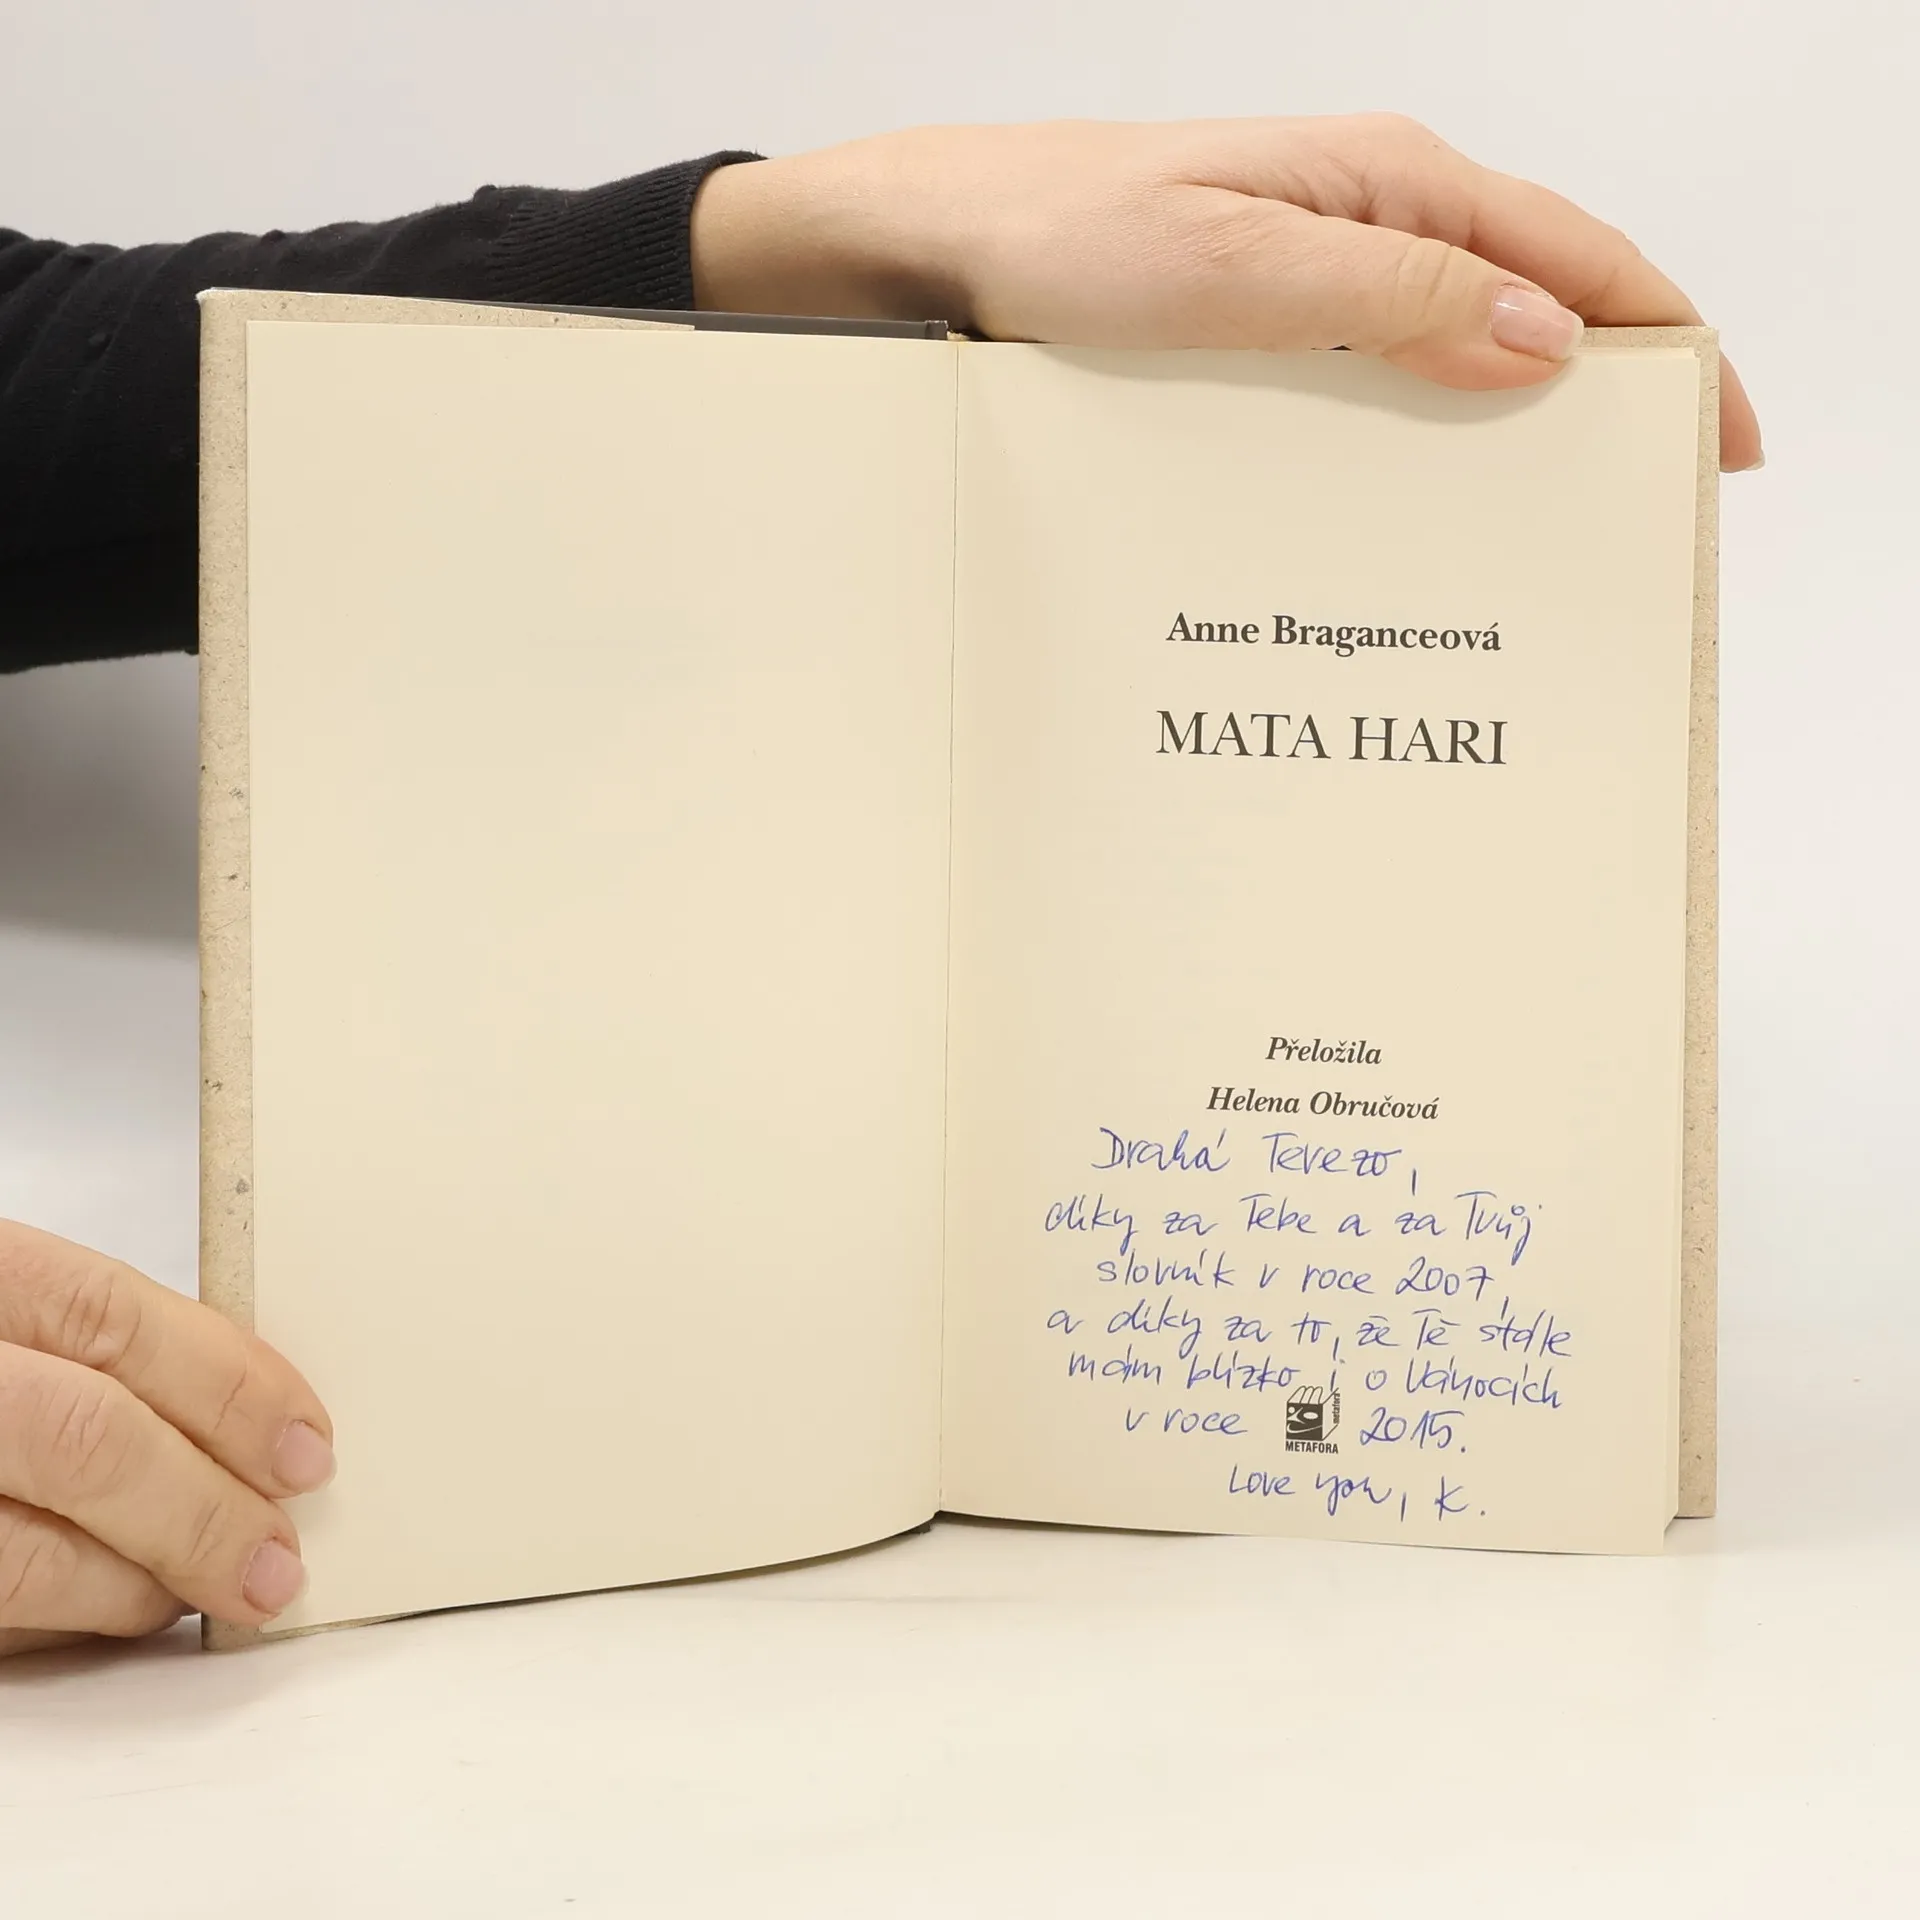 Anne Braganceová
MATA HARI
Přeložila
Helena Obručová
Drahá Terezo,
díky za Tebe a za Tvůj
slovník v roce 2007,
a díky za to, že Tě stále
mám blízko i o Vánocích
v roce 2015.
metafora
METAFORA
Love you, K.